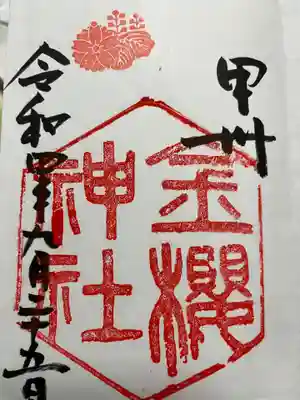 甲州
金櫻
神社
令和四年九月二十五日